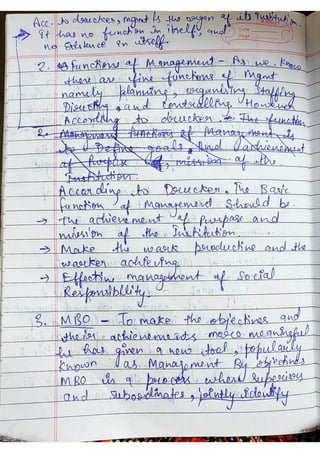 Acc. to drucker, mgmt is the organ of its institution.
It has no function in itself, and
no existence in itself.
Date
Page
2. Functions of Management - As we know
there are five functions of Mgmt
namely planning, organising Staffing
Directing, and controlling. However
According to drucker. The function
2. Management functions of Management is
to Define goals, and achievement
of Purpose, mission of the
Institution.
According to Drucker, The Basic
function of Management should be.
→ The achievement of purpose and
mission of the Institution.
→ Make the work productive and the
worker achieving
→ Effective management of Social
Responsibility.
3. MBO - To make the objectives and
their achievements more meaningful
he has given a new tool, popularly
known as Management By objectives
MBO is a process where superiors
and subordinates, jointly identify